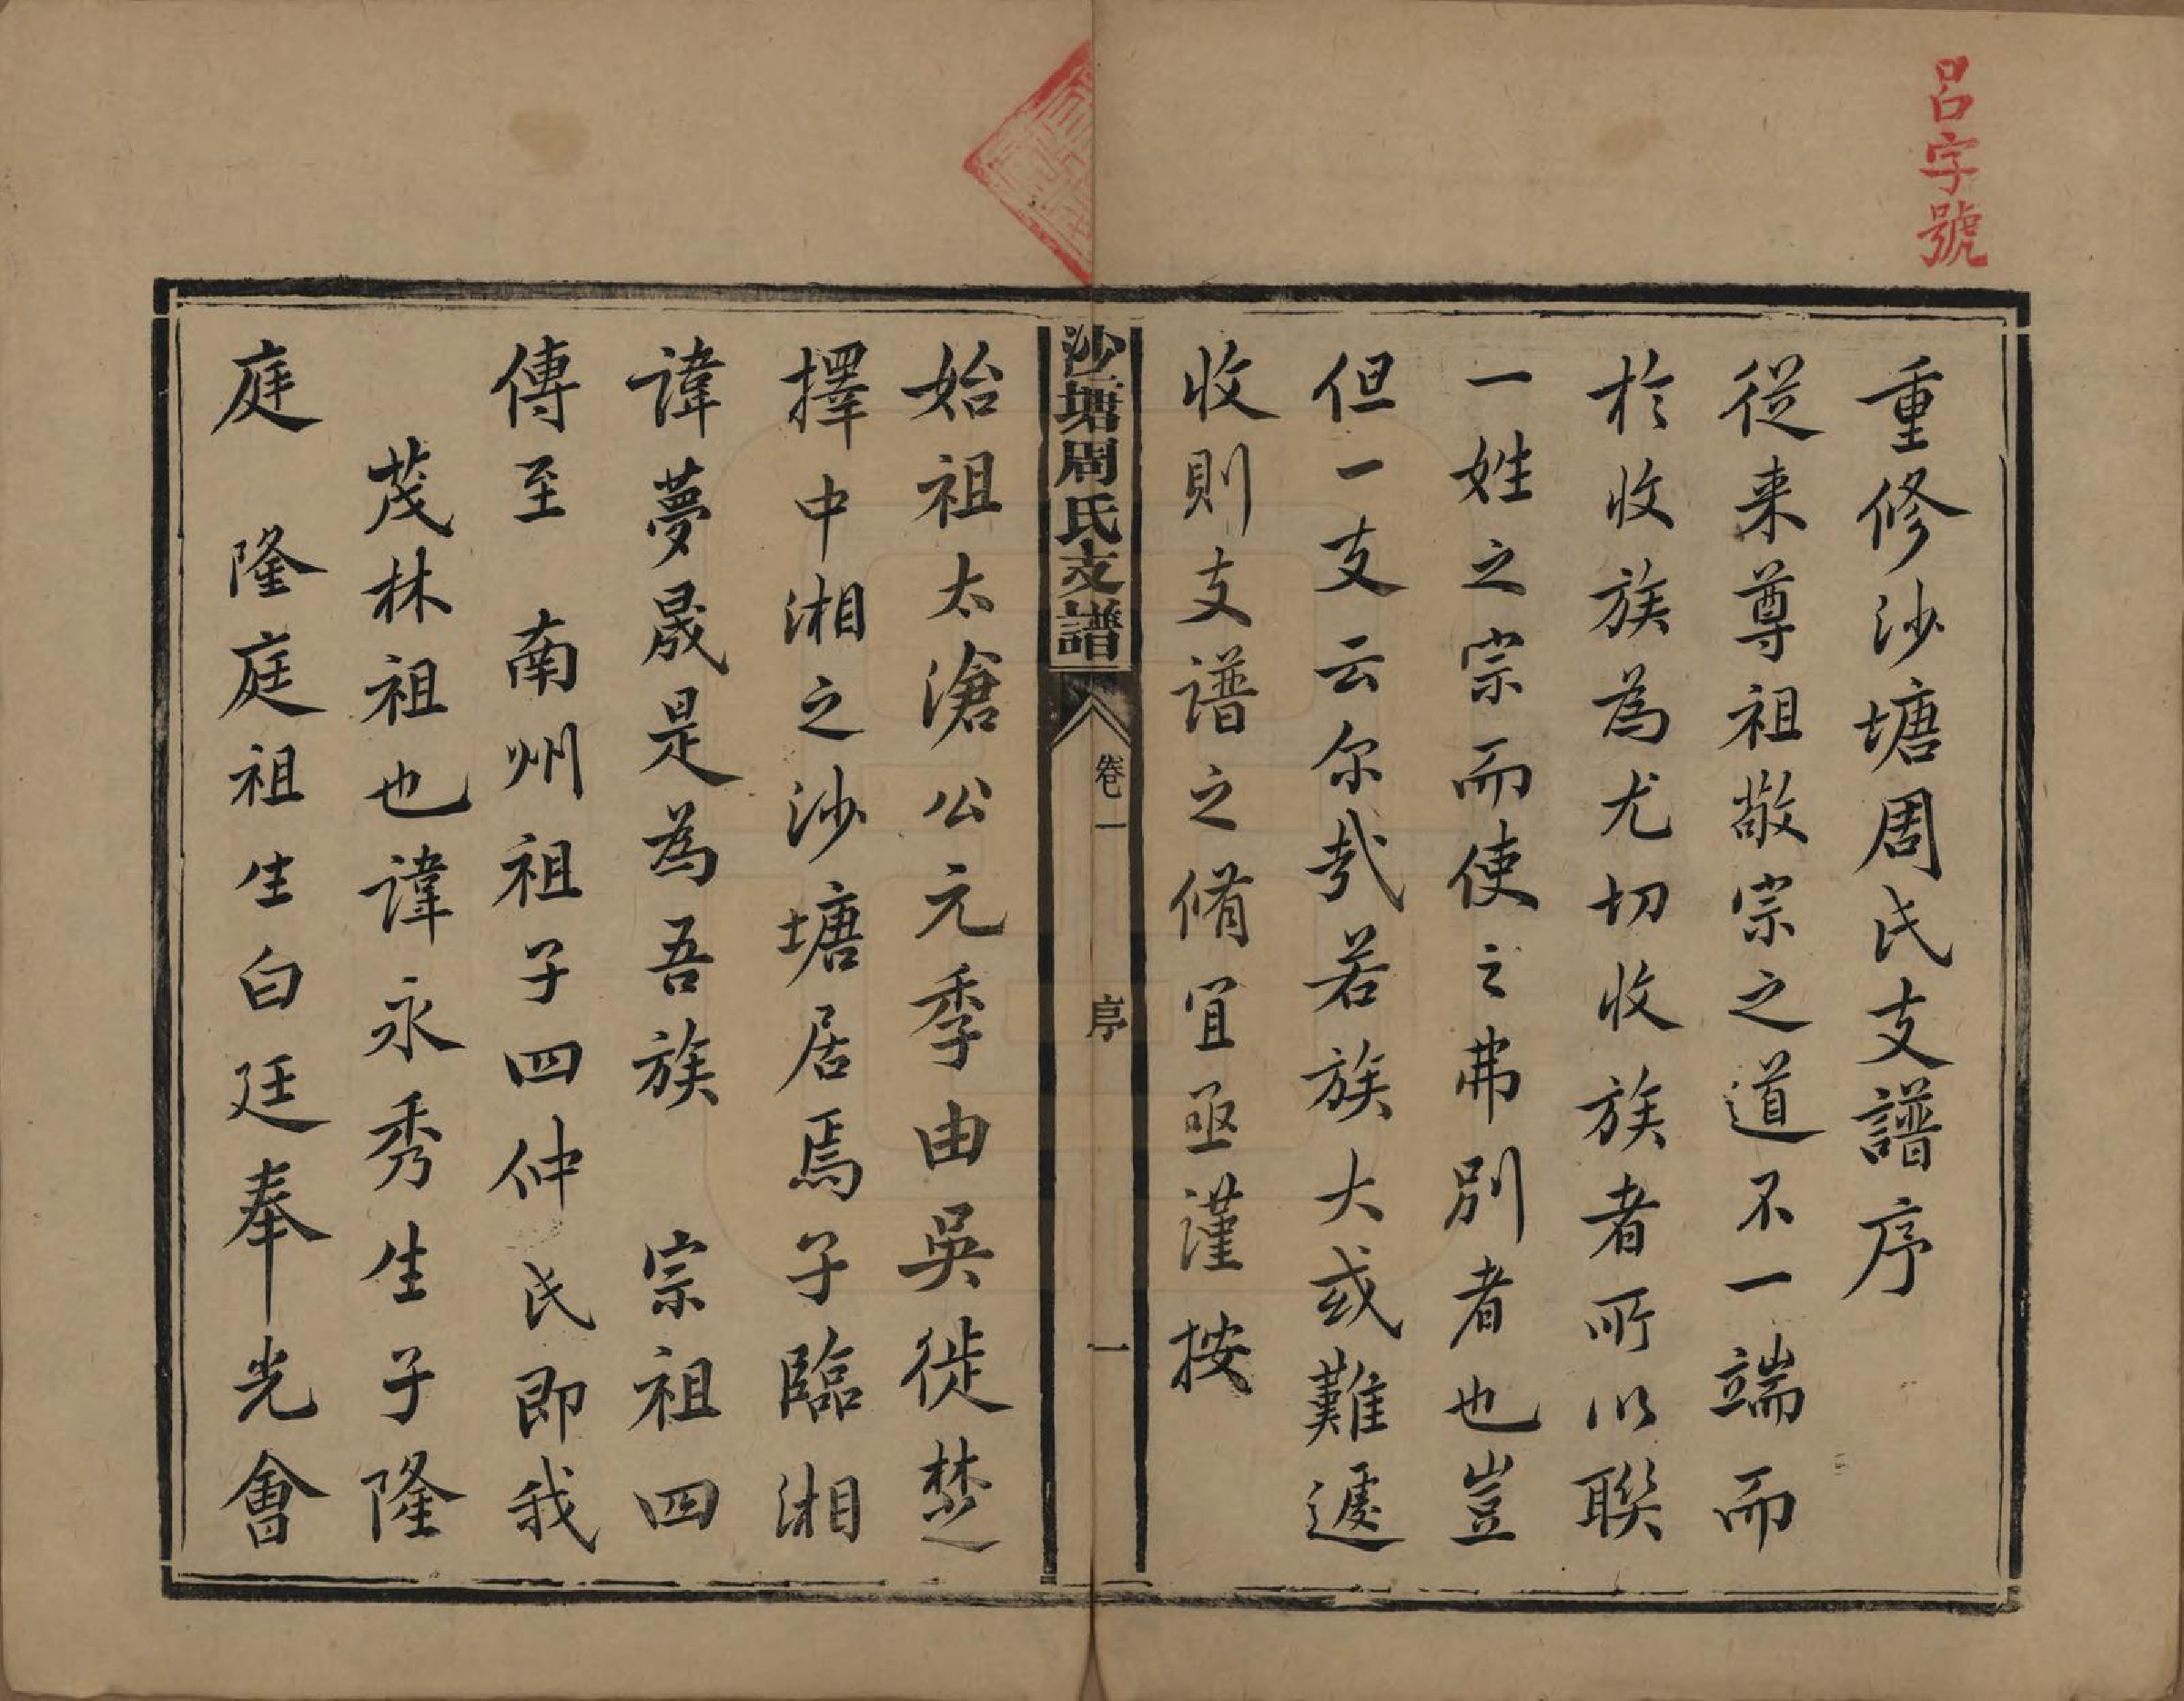 呂字號
重修沙塘周氏支譜序
從来尊祖敬宗之道不一端而
於收族為尤切收族者所以聯
一姓之宗而使之弗別者也豈
但一支云尔哉若族大或難遽
收則支谱之脩宜亟謹按
沙塘周氏支譜 卷一 序 一
始祖太滄公元季由吳徙楚
擇中湘之沙塘居焉子臨湘
諱夢晟是為吾族 宗祖四
傳至 南州祖子四仲氏即我
茂林祖也諱永秀生子隆
庭 隆庭祖生白廷奉光會